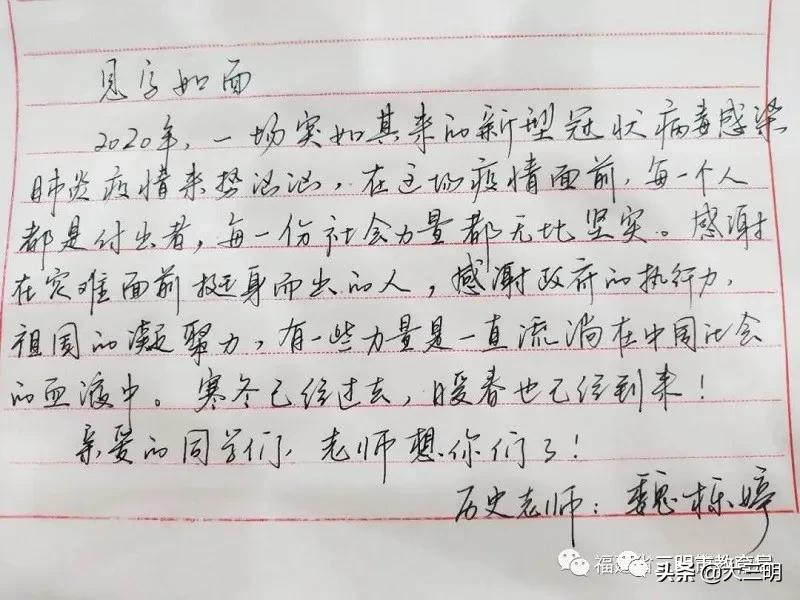 见字如面
2020年，一场突如其来的新型冠状病毒感染
肺炎疫情来势汹汹，在这场疫情面前，每一个人
都是付出者，每一份社会力量都无比坚实。感谢
在灾难面前挺身而出的人，感谢政府的执行力，
祖国的凝聚力，有一些力量是一直流淌在中国社会
的血液中。寒冬已经过去，暖春也已经到来！
亲爱的同学们，老师想你们了！
历史老师：魏栎婷
福建省三明市教育局
头条 @大三明